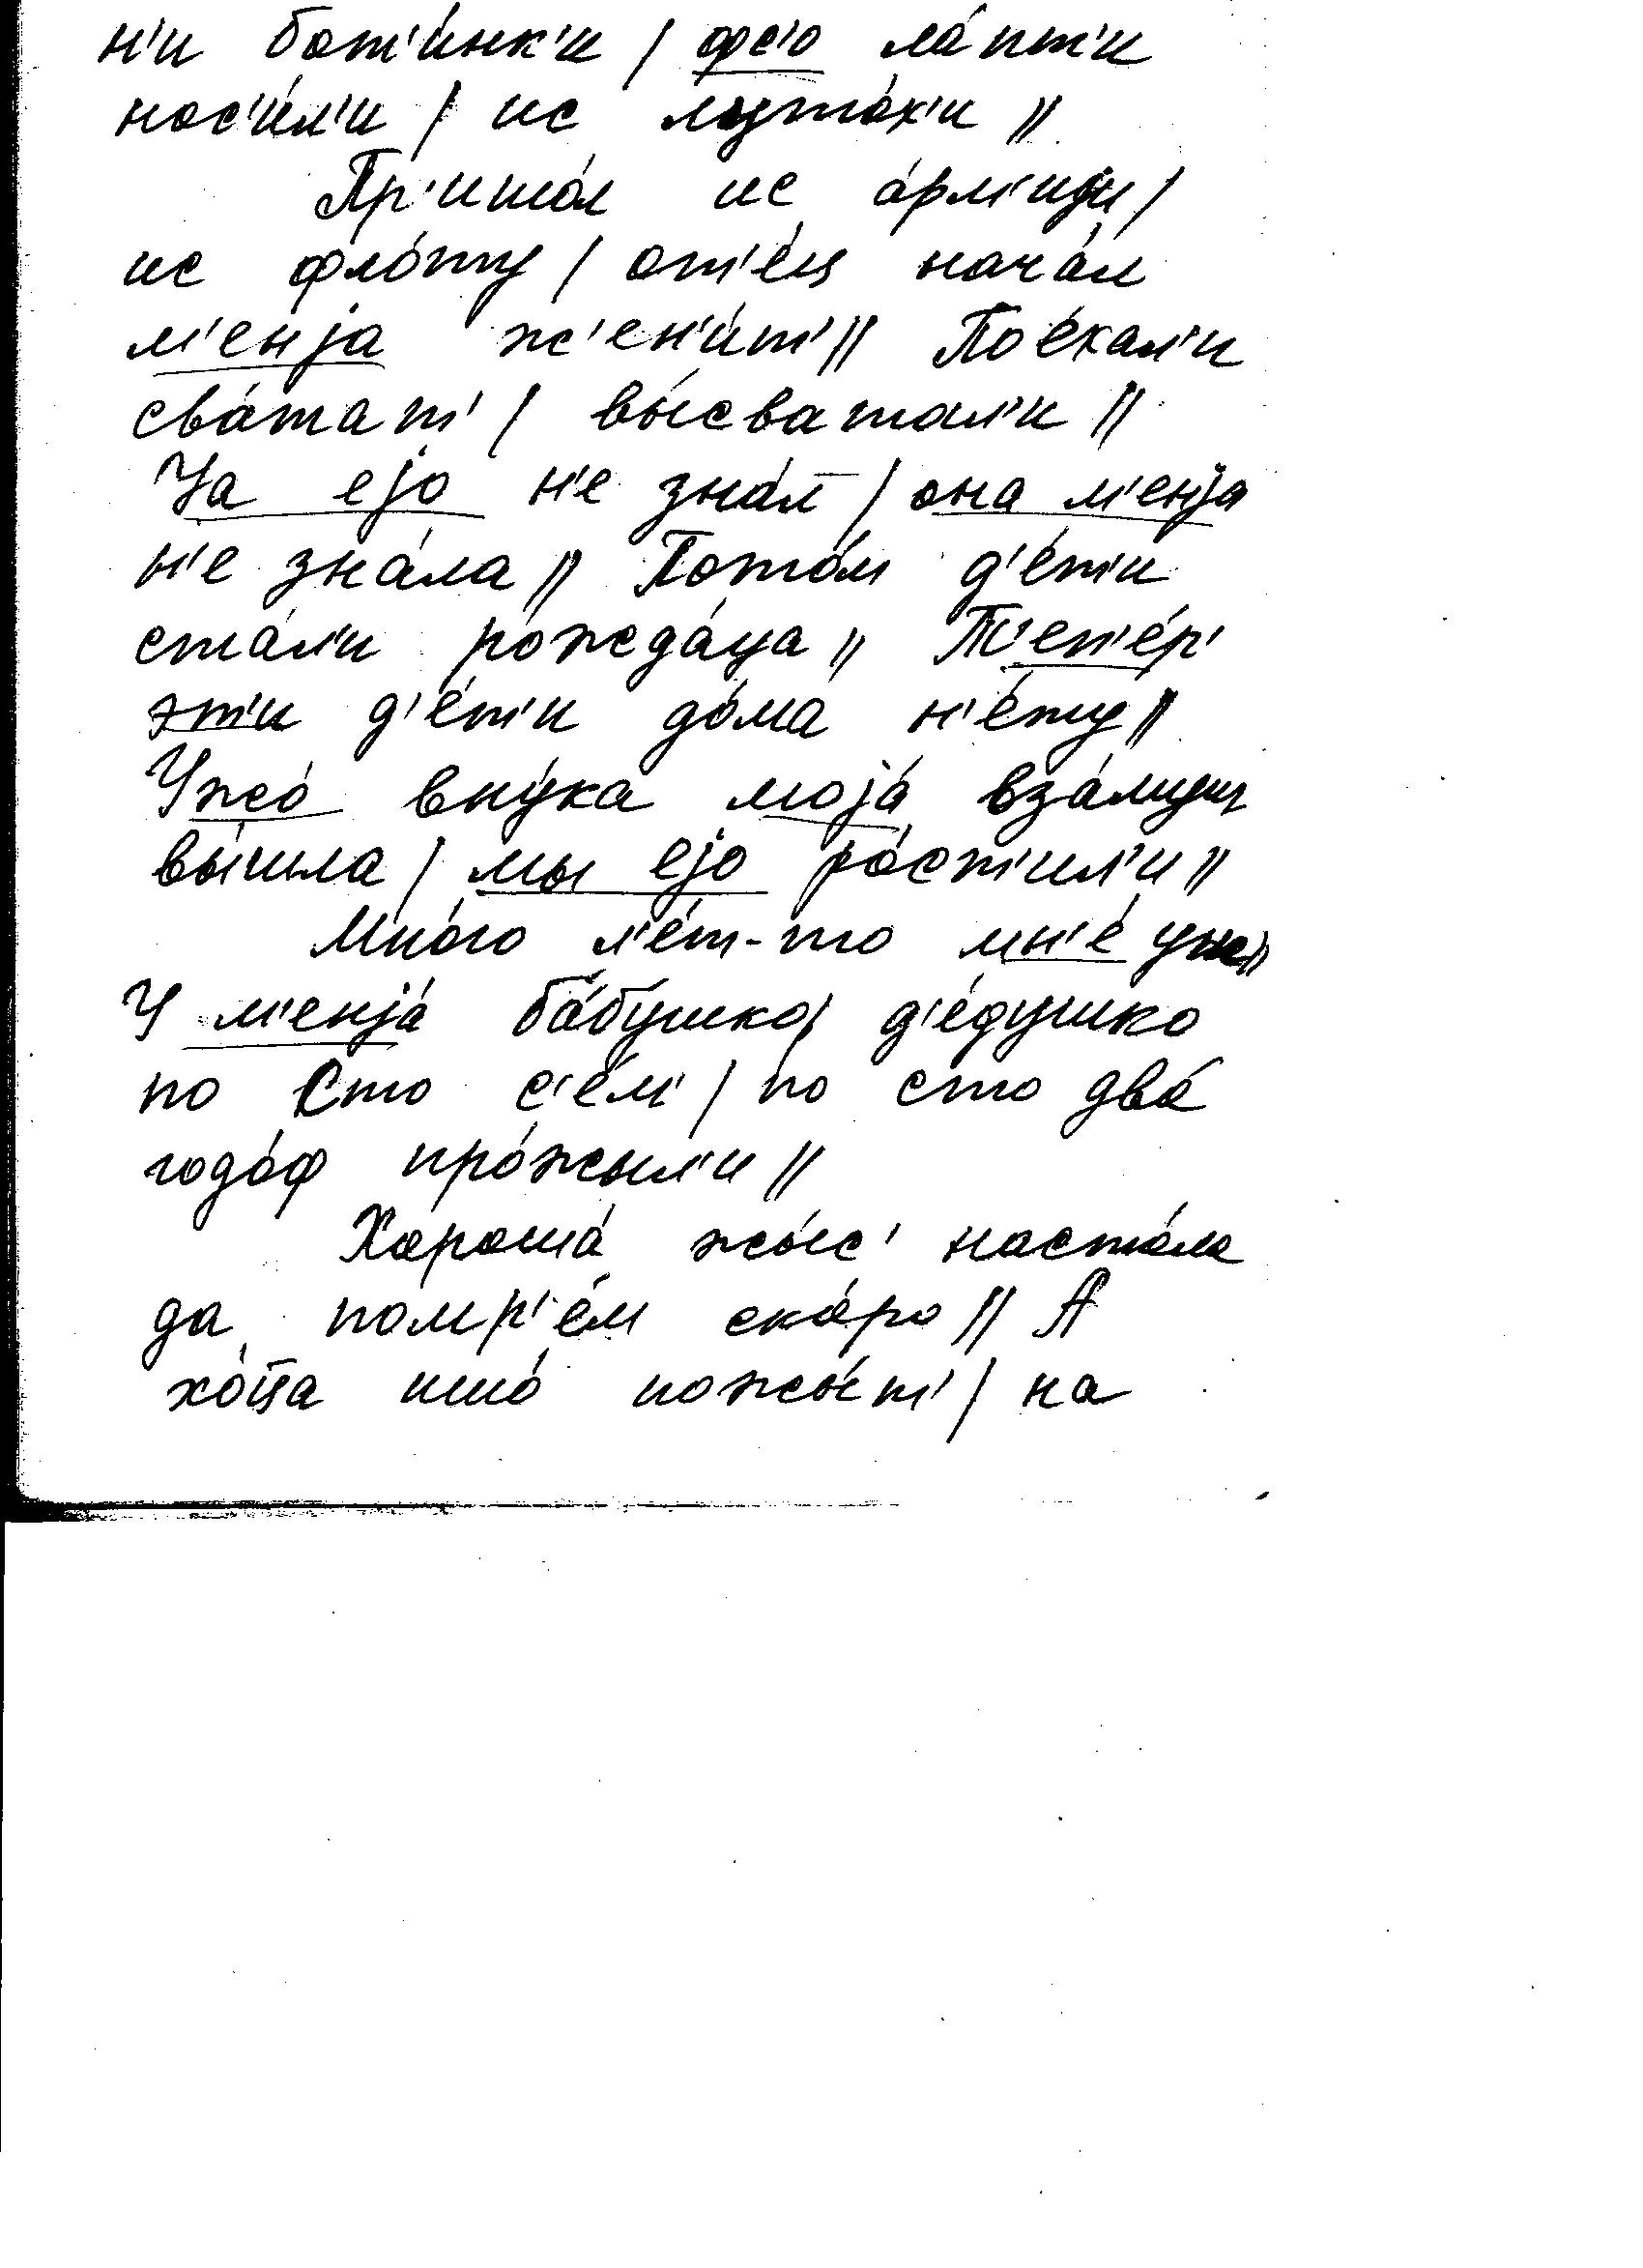 н'и бот'и́нк'и / фс'о ла́пт'и
нос'и́л'и / ис луто́х'и //
Пр'ишо́л ис а́рм'ииjи /
ис фло́ту / от'е́ц нача́л
м'енjа ж'ен'и́т' // Пое́хал'и
сва́тат' / вы́сватал'и //
Jа еjо н'е зна́л / она м'енjа
н'е зна́ла // Пото́м д'е́т'и
ста́л'и рожда́ца // Т'еп'е́р'
эт'и д'е́т'и до́ма н'е́ту //
Ужо́ вну́ка моjа́ вза́муш
вы́шла / мы еjо ро́ст'ил'и //
Мно́го л'е́т-то мн'е́ уж //
У м'енjа́ ба́бушко / д'е́душко
по сто с'е́м' / по сто два́
годо́ф про́жыл'и //
Хороша́ жы́с' наста́ла
да помр'е́м ско́ро // А
хо́ц̄а ишо́ пожы́т' / на